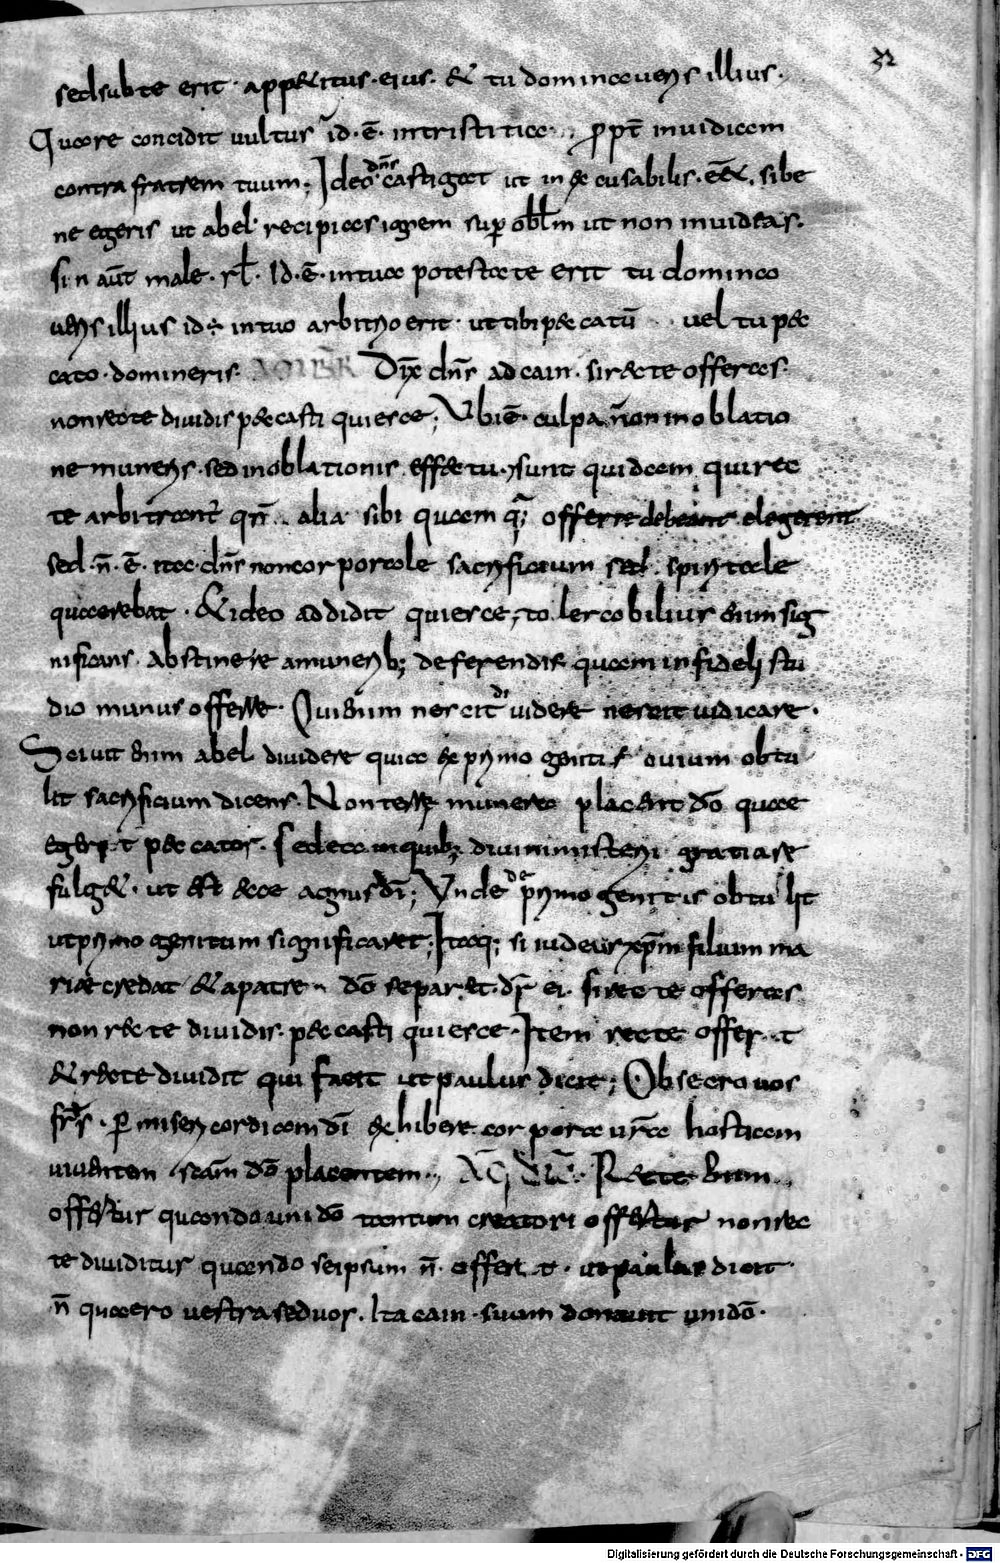 32
sedsubte erit· app&itus·eius· & tu dominaueris illius·
Quare concidit uultus id·ē· intristitia·,, ꝓpt̄ inuidiam
contra fratrem tuum; Ideo dn̄s castigat ut inexcusabilis·eēt, sibe
ne egeris ut abel recipias ignem sup̱ obl̄m ut non inuideas·
si n aūt male· rl̄· Id·ē· intua potestate erit tu domina
ueris illius id÷ intuo arbitrio erit· uttibi peccatū uel tu pec
cato·domineris· Dix̄ dn̄s adcain· sirecte offeras·
nonrecte diuidis peccasti quiesce; Ubiē· culpa n̄on inoblatio
ne muneris·sed inoblationis effectu·; sunt quidam quirec
te arbitrant̄ qn̄ alia sibi quam q; offerre debeant elegerent
sed·n̄·ē· ita·dn̄s noncorporale sacrificium sed spiritale
quaerebat· & ideo addidit quiesce, tolerabilius enim sig
nificans· Abstinere amunerib; deferendis quam infideli stu
dio munus offerre· Qui enim nescit diuidere nescit iudicare·
Sciuit enim abel diuidere quia exprimogenitis ouium obtu
lit sacrificium dicens· Non terrę munera placent dō quae
egerit peccator· sed ea inquib; diuini misterii gratia re
fulg&· ut est ecce agnus dī; Unde de primogenitis obtulit
utprimogenitum significaret; Itaq; si iudeus xp̄m filium ma
riae credat & apatre dō separet·dr̄ ei· sirecte offeras
non recte diuidis· peccasti quiesce· Item recte offert
& recte diuidit qui facit ut paulus dicit; Obsecro uos
frs· ꝑ misericordiam dī exhibere corpora ur̄a hostiam
uiuentem sc̄am dō placentem·, Recte enim
offertur quando uni dō tantum creatori offertur nonrec
te diuiditur quando seipsum n̄· offert· ut paulus dicit
n̄ quaero uestra sed uos· Ita cain·suam donauit uni dō·
Digitalisierung gefördert durch die Deutsche Forschungsgemeinschaft - DFG